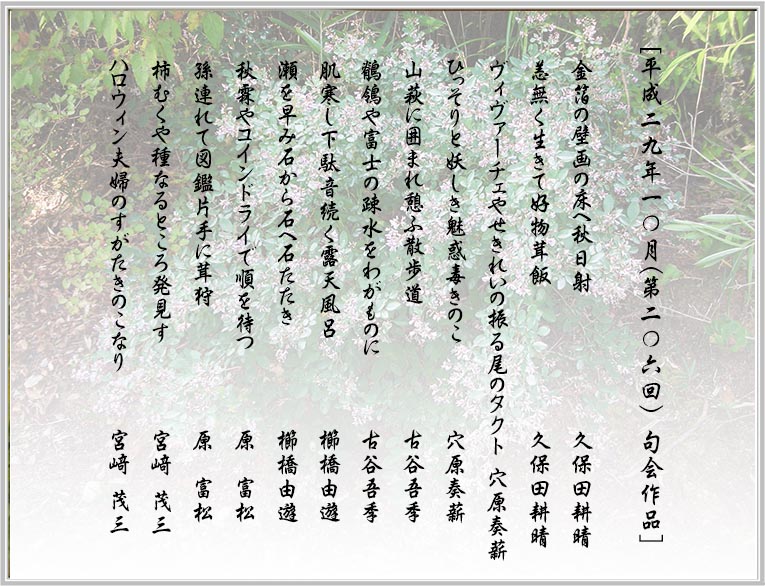 [平成二九年一〇月(第二〇六回) 句会作品]
金箔の壁画の床へ秋日射 久保田耕晴
恙無く生きて好物茸飯 久保田耕晴
ヴィヴァーチェやせきれいの振る尾のタクト 穴原奏薪
ひっそりと妖しき魅惑毒きのこ 穴原奏薪
山萩に囲まれ憩ふ散歩道 古谷吾季
鶺鴒や富士の疎水をわがものに 古谷吾季
肌寒し下駄音続く露天風呂 櫛橋由遊
瀬を早み石から石へ石たたき 櫛橋由遊
秋霖やコインドライで順を待つ 原 富松
孫連れて図鑑片手に茸狩 原 富松
柿むくや種なるところ発見す 宮﨑 茂三
ハロウィン夫婦のすがたきのこなり 宮﨑 茂三